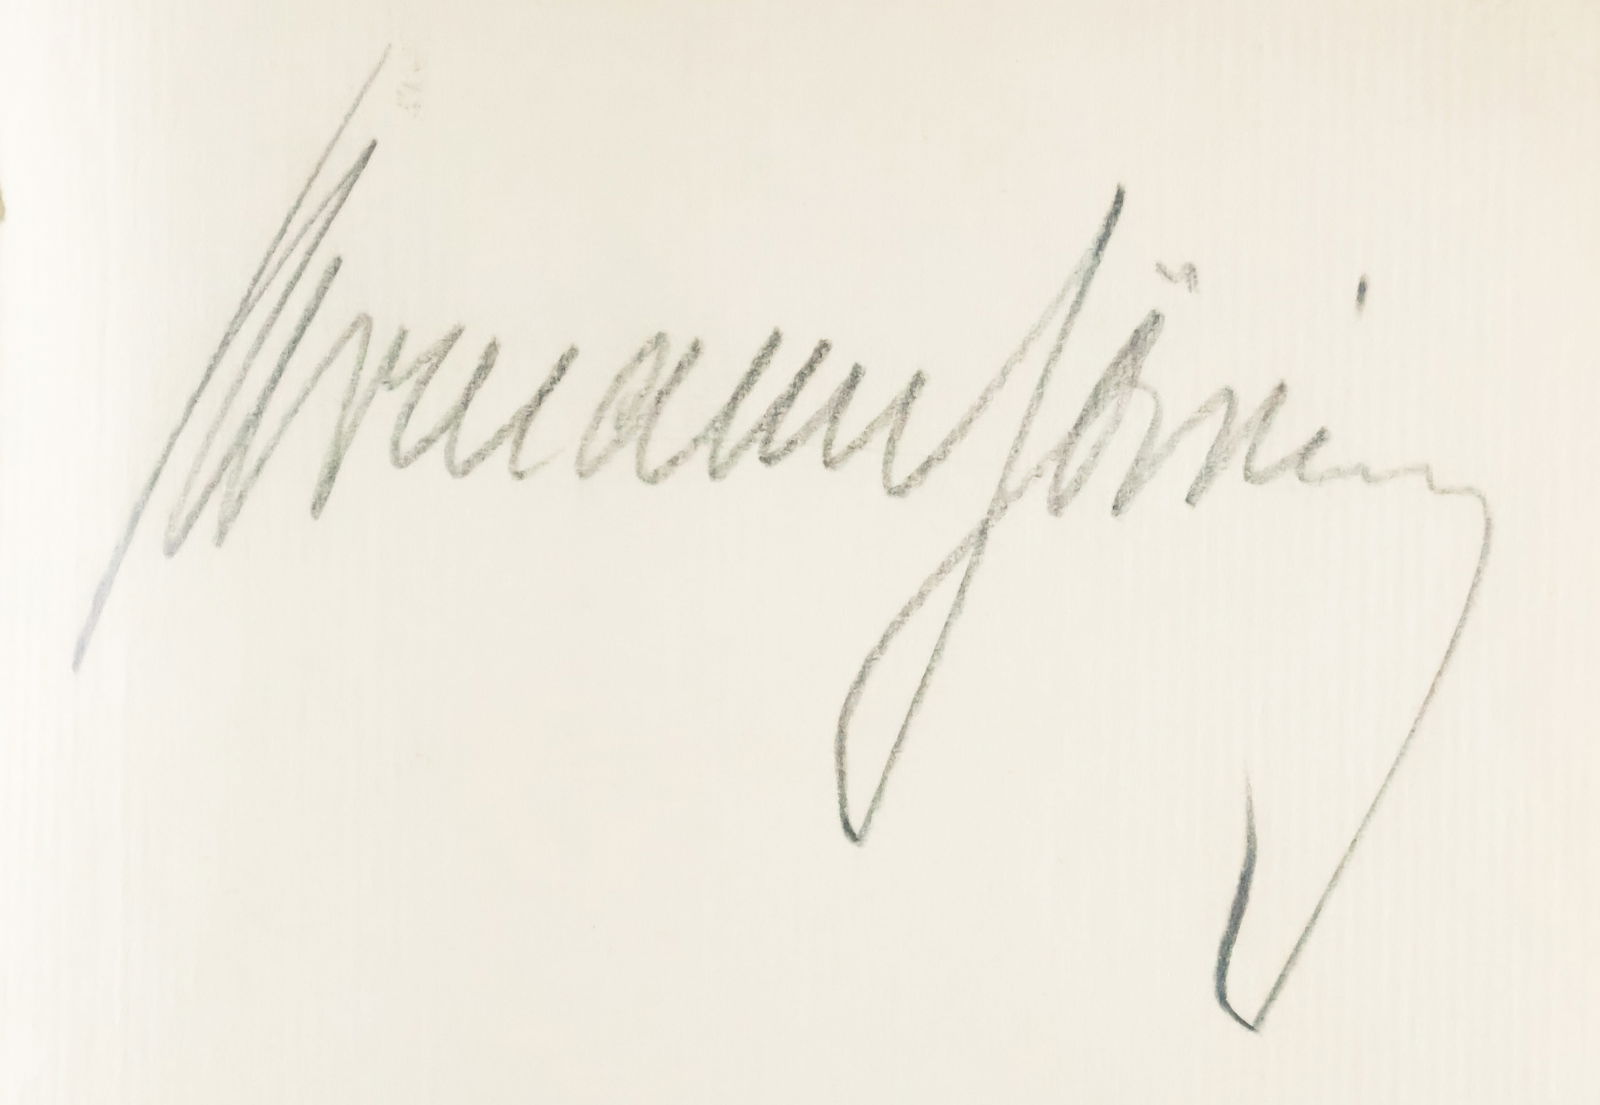 Hermann Göring